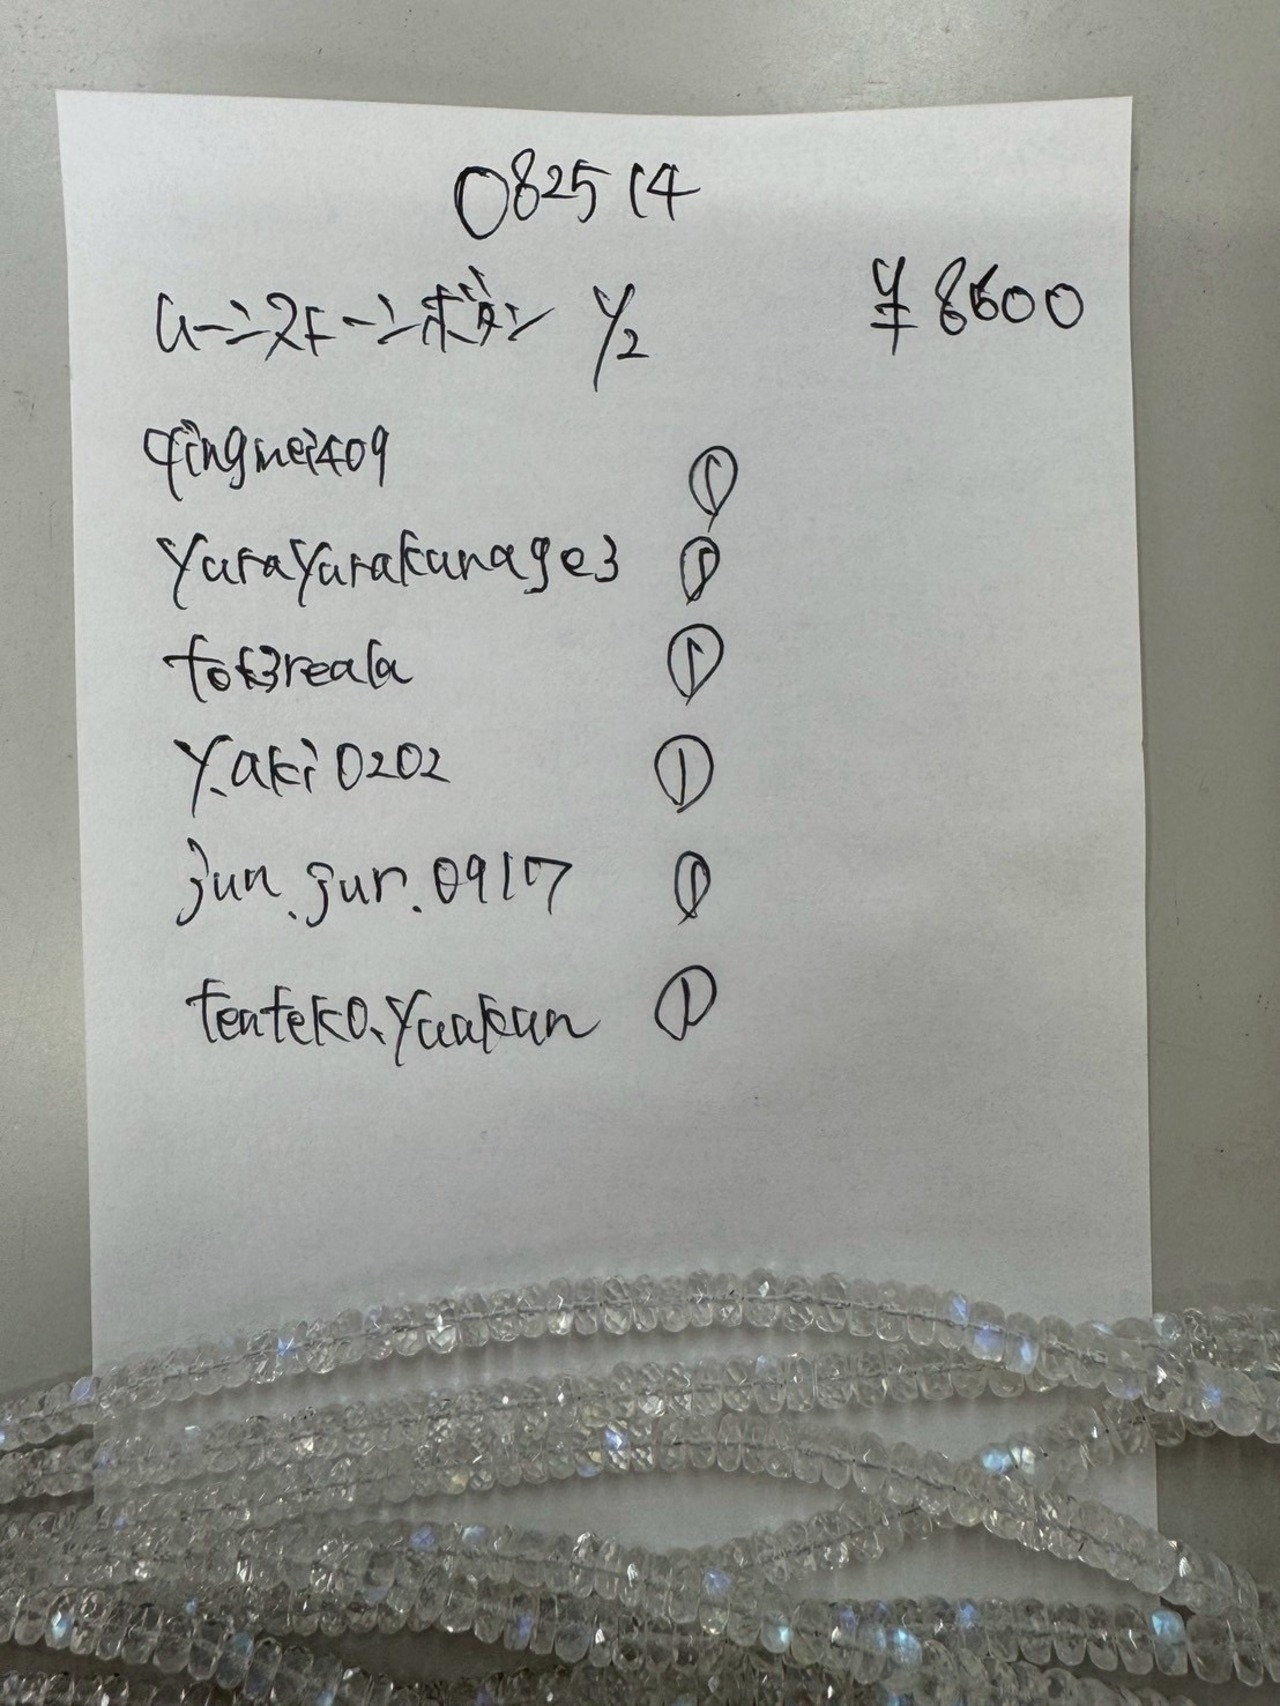 082514
ムーンストーンボタン 1/2 ¥8600
qingmei409 ①
yurayurakurage3 ①
tok3reala ①
y.aki0202 ①
jun.jun.0917 ①
tenteko.yuukun ①